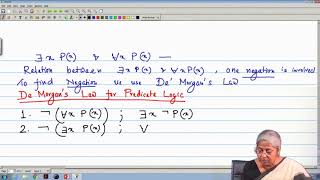 ∃x P(x) & ∀x P(x) —
Relation between ∃x P(x) & ∀x P(x), one negation is involved
So find Negation we use De' Morgan's Law
De Morgan's Law for Predicate Logic
1. ¬(∀x P(x)) ; ∃x ¬P(x)
2. ¬(∃x P(x)) ; ∀